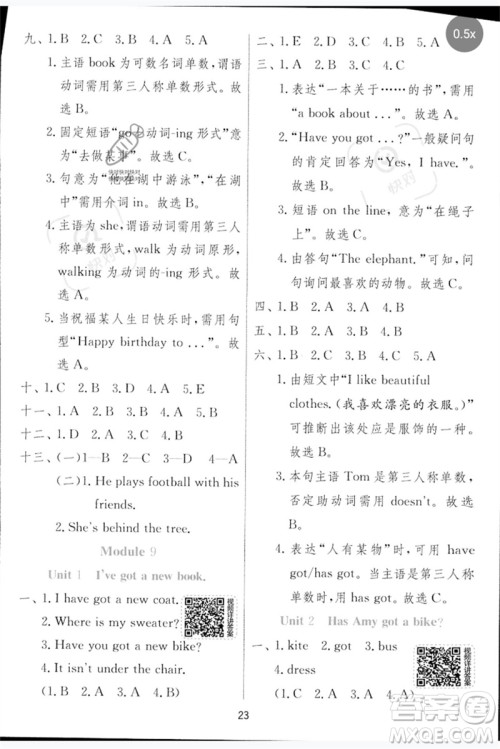 0.5x
九、1. B　2. A　3. B　4. A　5. B
1. 主语 book 为可数名词单数,谓语
动词需用第三人称单数形式。故
选 B。
2. 固定短语“go+动词-ing 形式”意
为“去做某事”。故选 A。
3. 句意为“他在湖中游泳”,“在湖
中”需用介词 in。故选 B。
4. 主语为 she,谓语动词需用第三人
称单数形式,walk 为动词原形,
walking 为动词的-ing 形式。故
选 A。
5. 当祝福某人生日快乐时,需用句
型“Happy birthday to ...”。故
选 B。
十、1. C　2. B　3. D　4. A　5. E
十一、1. A　2. B　3. B　4. A
十二、1. A　2. B　3. A　4. B
十三、(一)1—B　2—C　3—D　4—A
(二)1. He plays football with his
friends.
2. She's behind the tree.
Module 9
Unit 1　I've got a new book.
一、1. I have got a new coat.
2. Where is my sweater?
3. Have you got a new bike?
4. It isn't under the chair.
(1. A　2. A　3. A　4. B)
视频讲解答案
二、1. C　2. B　3. A　4. B
三、1. A　2. A　3. C　4. C
1. 表达“一本关于……的书”,需用
“a book about ...”。故选 A。
2. “Have you got ...?”一般疑问句
的肯定回答为“Yes, I have.”。
故选 A。
3. 短语 on the line,意为“在绳子
上”。故选 C。
4. 由答句“The elephant.”可知,问
句询问最喜欢的动物。故选 C。
四、1. B　2. A　3. A　4. B
五、1. B　2. B　3. A　4. A
六、1. B　2. A　3. A　4. C
1. 由短文中“I like beautiful
clothes. (我喜欢漂亮的衣服。)”
可推断出该处应是服饰的一种。
故选 B。
3. 本句主语 Tom 是第三人称单数,
否定助动词需用 doesn't。故
选 A。
4. 表达“人有某物”时,可用 have
got/has got。本句主语是第三人
称单数,动词需用 has got。故
选 C。
Unit 2　Has Amy got a bike?
一、1. kite　2. got　3. bus
4. dress
(1. C　2. A　3. A　4. A)
视频讲解答案
23